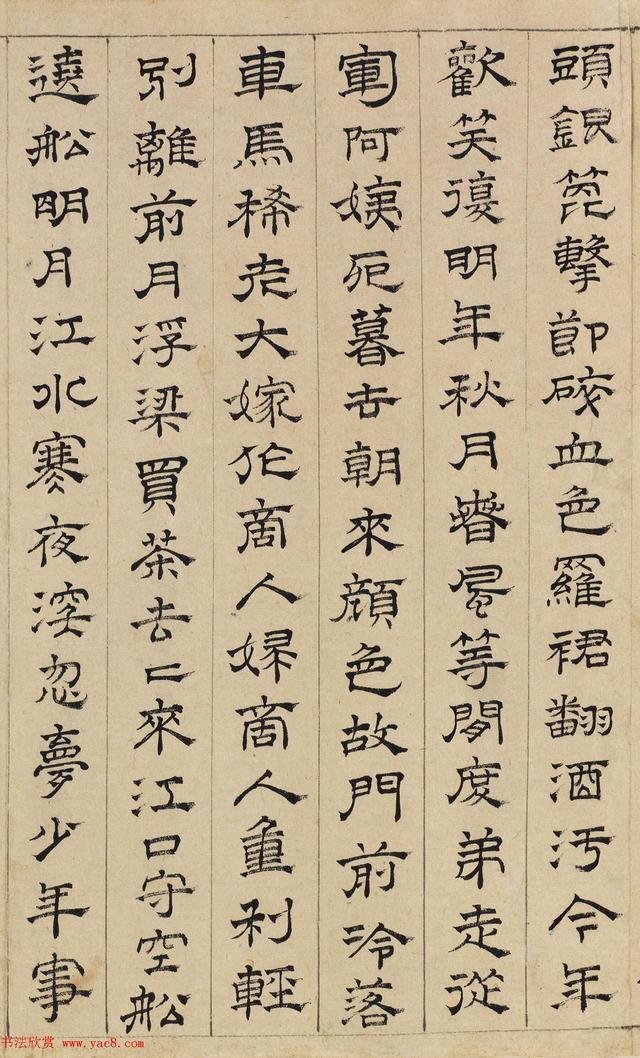 頭銀箆擊節碎血色羅裙翻酒汙今年
歡笑復明年秋月春風等閒度弟走從
軍阿姨死暮去朝來顏色故門前冷落
車馬稀老大嫁作商人婦商人重利輕
別離前月浮梁買茶去二來江口守空船
遶船明月江水寒夜深忽夢少年事
书法欣赏 www.yac8.com